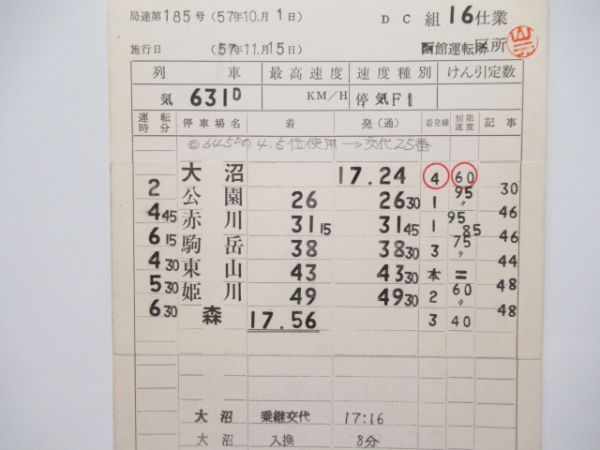 局達第185号 (57年10月1日) DC組 16仕業
施行日 (57年11月15日) 函館運転所
列車 最高速度 速度種別 けん引定数
気 631D KM/H 停気F1
運転時分 停車場名 着 発(通) 着発線 制限速度 記事
4.5位使用→交代25番
大沼 17.24 4 60
2 公園 26 26 30 1 95 30
4 45 赤川 31 15 31 45 1 95 85 46
6 15 駒岳 38 38 30 3 75 46
4 30 東山 43 43 30 本 = 44
5 30 姫川 49 49 30 2 60 48
6 30 森 17.56 3 40 48
大沼 乗継交代 17:16
大沼 入換 8分